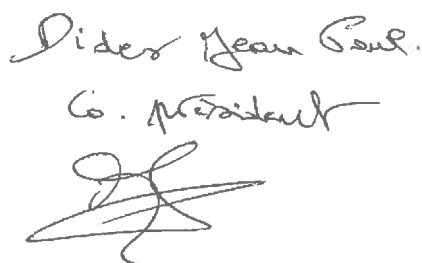 Dides Jean Paul.
Co. président